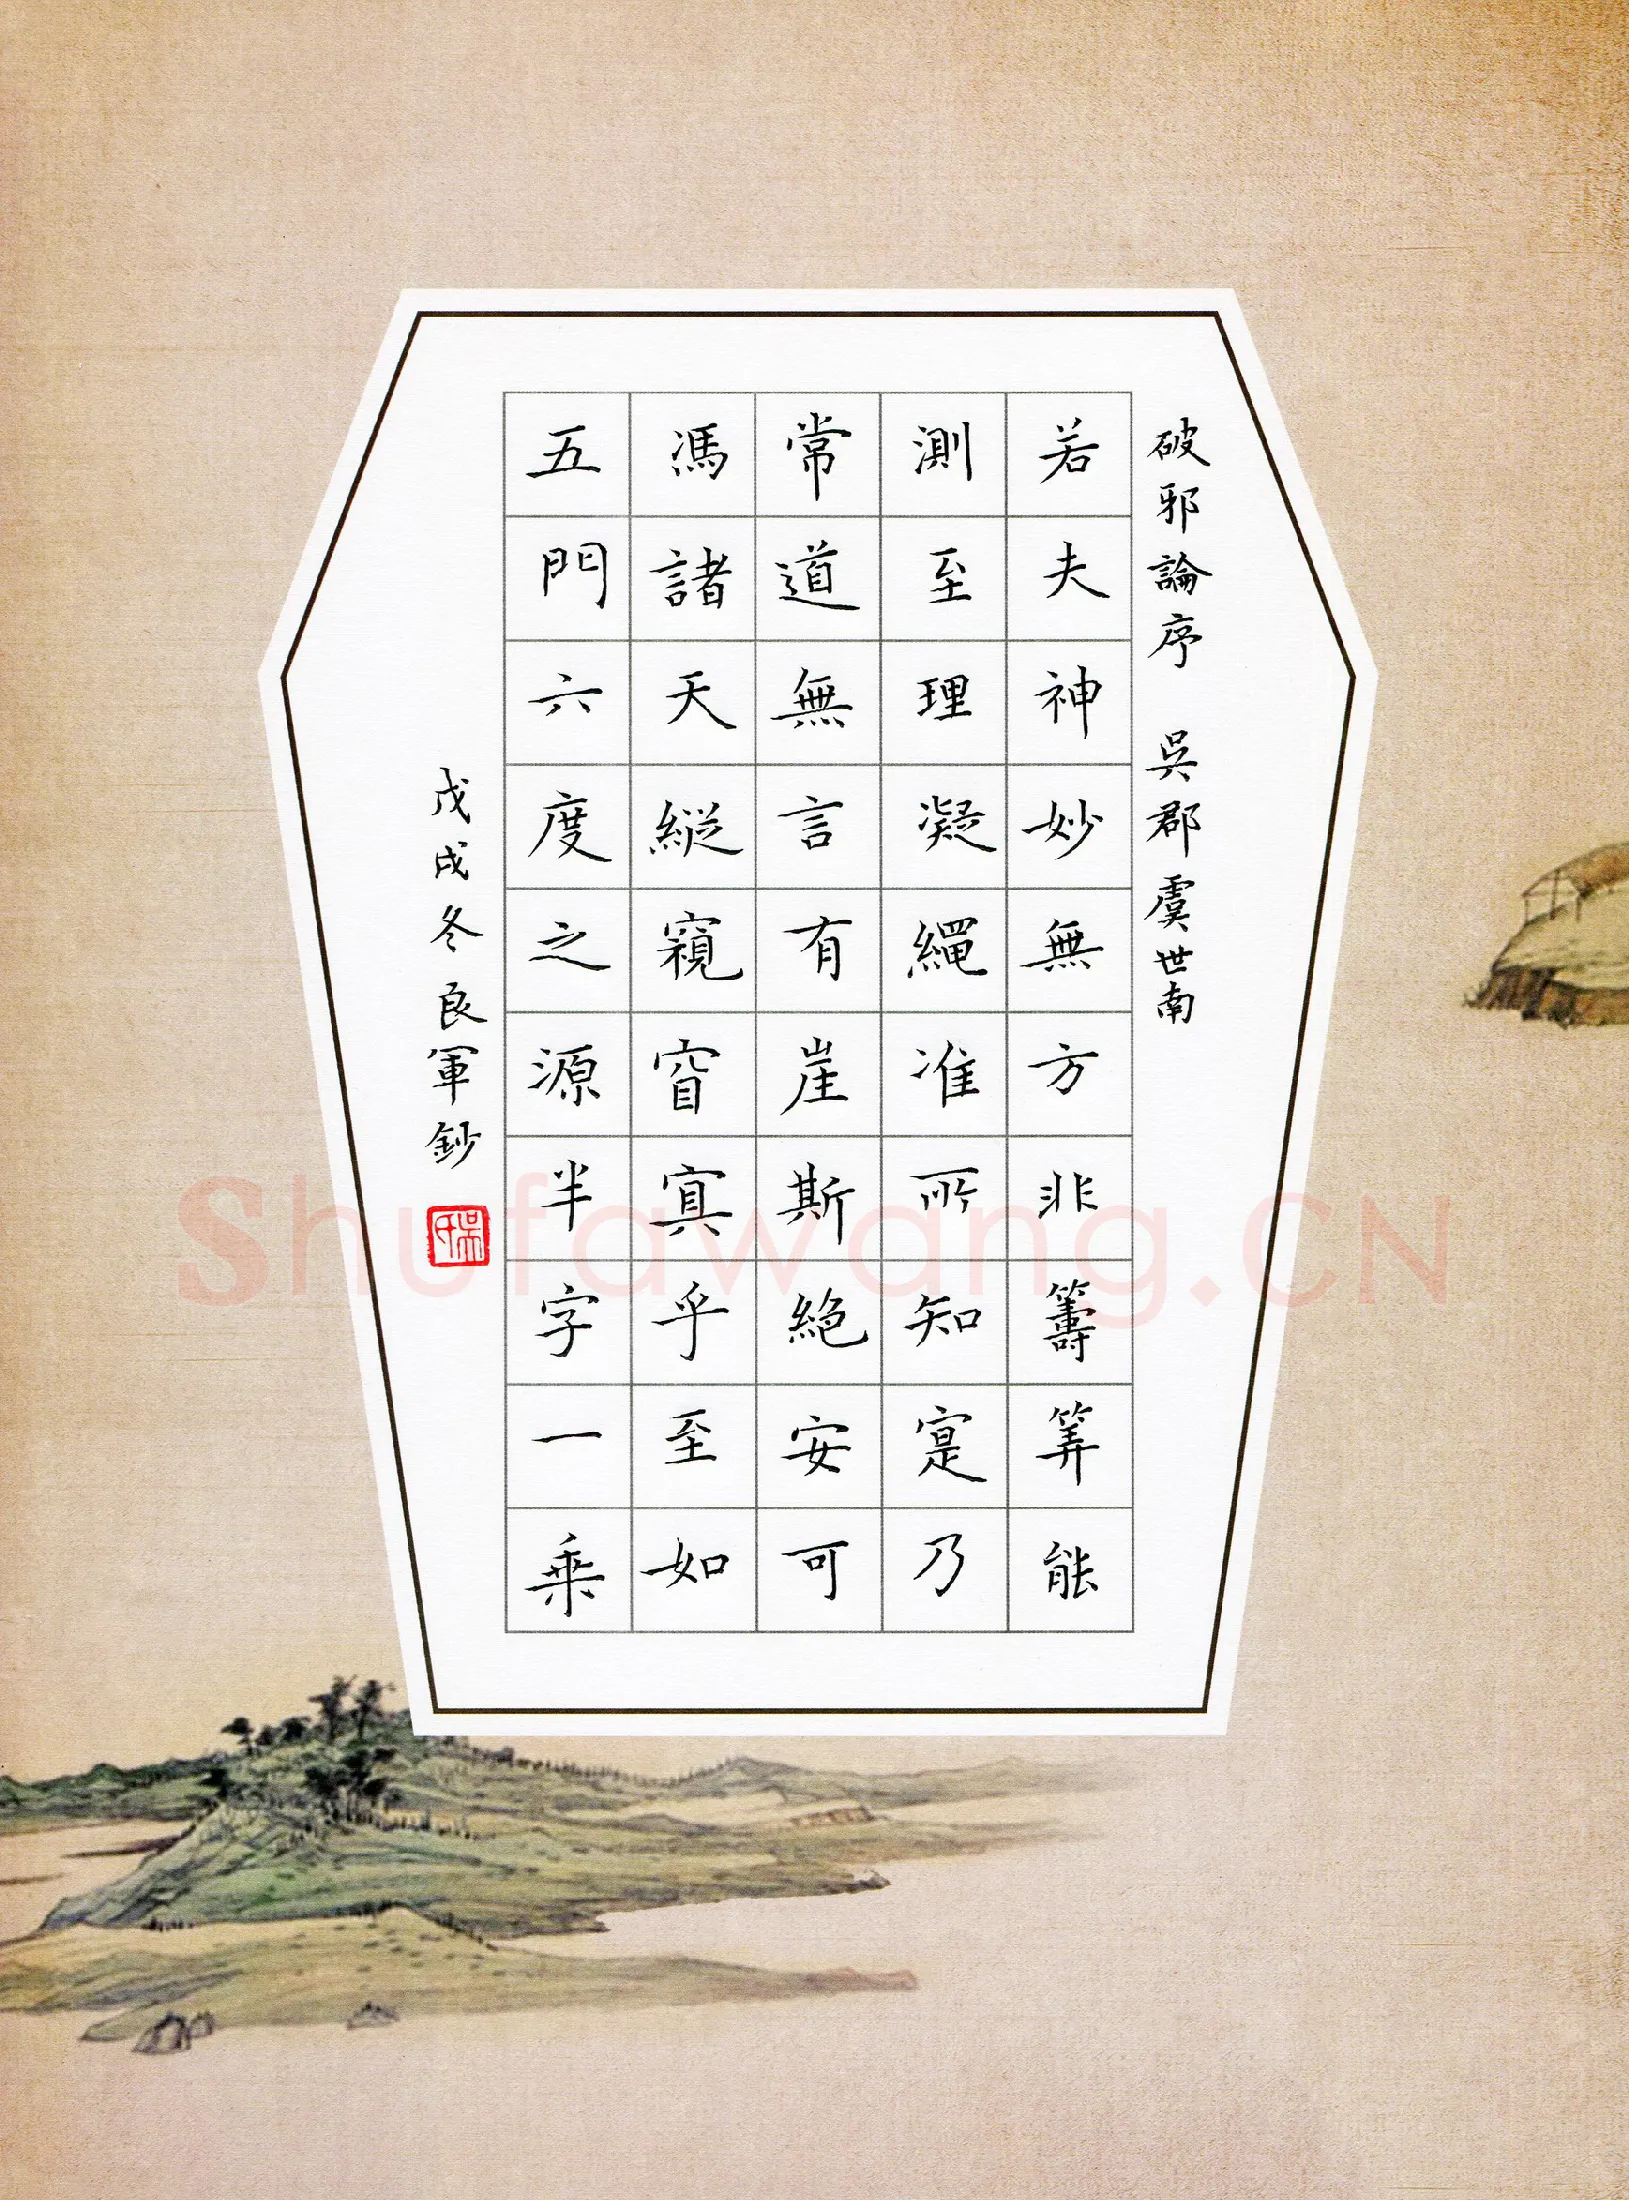 破邪論序 吳郡虞世南
若夫神妙無方非籌筭能
測至理凝繩准所知寔乃
常道無言有崖斯絕安可
馮諸天縱窺窅寘乎至如
五門六度之源半字一乘
戊戌冬良軍鈔
Shufawang.CN